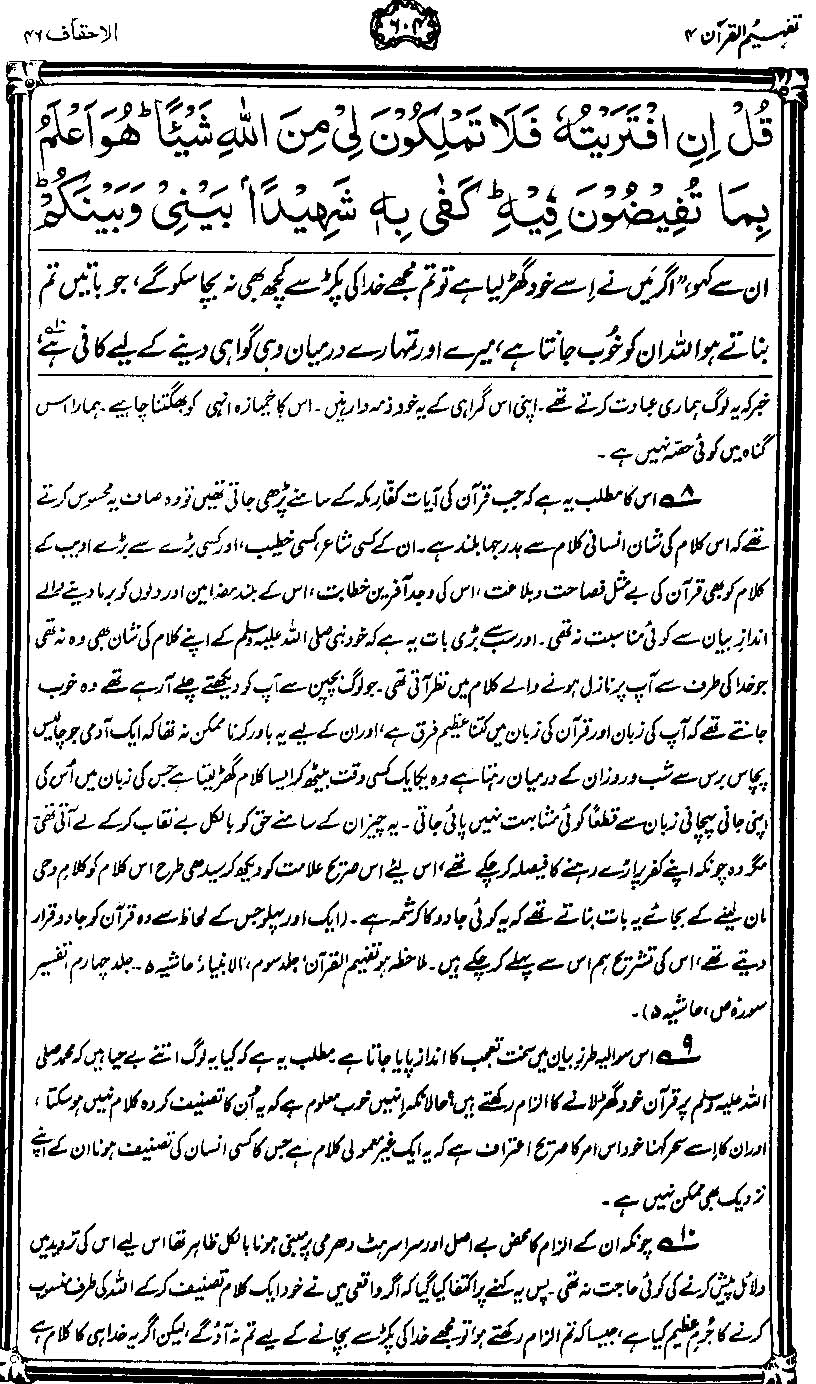 تفہیم القرآن ۴
۶۰۴
الاحقاف ۴۶
قُلْ اِنِ افْتَرَيْتُهٗ فَلَا تَمْلِكُوْنَ لِيْ مِنَ اللّٰهِ شَيْـًٔا ؕ هُوَ اَعْلَمُ
بِمَا تُفِيْضُوْنَ فِيْهِ ؕ كَفٰى بِهٖ شَهِيْدًۢا بَيْنِيْ وَبَيْنَكُمْ ؕ
ان سے کہو، ”اگر میں نے اِسے خود گھڑ لیا ہے تو تم مجھے خدا کی پکڑ سے کچھ بھی نہ بچا سکو گے، جو باتیں تم
بناتے ہو اللہ ان کو خُوب جانتا ہے، میرے اور تمہارے درمیان وہی گواہی دینے کے لیے کافی ہے،۱۰
خبر کہ یہ لوگ ہماری عبادت کرتے تھے۔ اپنی اس گمراہی کے یہ خود ذمہ دار ہیں۔ اس کا خمیازہ انہی کو بھگتنا چاہیے۔ ہمارا اس
گناہ میں کوئی حصہ نہیں ہے۔
۸ اس کا مطلب یہ ہے کہ جب قرآن کی آیات کفّارِ مکہ کے سامنے پڑھی جاتی تھیں تو وہ صاف یہ محسوس کرتے
تھے کہ اس کلام کی شان انسانی کلام سے بدرجہا بلند ہے۔ ان کے کسی شاعر، کسی خطیب، اور کسی بڑے سے بڑے ادیب کے
کلام کو بھی قرآن کی بے مثل فصاحت و بلاغت، اس کی وجد آفرین خطابت، اس کے بلند مضامین اور دلوں کو برما دینے والے
اندازِ بیان سے کوئی مناسبت نہ تھی۔ اور سب سے بڑی بات یہ ہے کہ خود نبی صلی اللہ علیہ وسلم کے اپنے کلام کی شان بھی وہ نہ تھی
جو خدا کی طرف سے آپ پر نازل ہونے والے کلام میں نظر آتی تھی۔ جو لوگ بچپن سے آپ کو دیکھتے چلے آ رہے تھے وہ خوب
جانتے تھے کہ آپ کی زبان اور قرآن کی زبان میں کتنا عظیم فرق ہے، اور ان کے لیے یہ باور کرنا ممکن نہ تھا کہ ایک آدمی جو چالیس
پچاس برس سے شب و روز ان کے درمیان رہتا ہے وہ یکایک کسی وقت بیٹھ کر ایسا کلام گھڑ لیتا ہے جس کی زبان میں اُس کی
اپنی جانی پہچانی زبان سے قطعاً کوئی مشابہت نہیں پائی جاتی۔ یہ چیز ان کے سامنے حق کو بالکل بے نقاب کر کے لے آتی تھی
مگر وہ چونکہ اپنے کفر پر اڑے رہنے کا فیصلہ کر چکے تھے، اس لیئے اس صریح علامت کو دیکھ کر سیدھی طرح اس کلام کو کلامِ وحی
مان لینے کے بجائے یہ بات بناتے تھے کہ یہ کوئی جادو کا کرشمہ ہے۔ (ایک اور پہلو جس کے لحاظ سے وہ قرآن کو جادو قرار
دیتے تھے، اس کی تشریح ہم اس سے پہلے کر چکے ہیں۔ ملاحظہ ہو تفہیم القرآن، جلد سوم، الانبیاء حاشیہ ۵۔ جلد چہارم، تفسیر
سورۂ ص، حاشیہ ۵)۔
۹ اس سوالیہ طرزِ بیان میں سخت تعجب کا انداز پایا جاتا ہے مطلب یہ ہے کہ کیا یہ لوگ اتنے بے حیا ہیں کہ محمد صلی
اللہ علیہ وسلم پر قرآن خود گھڑ لانے کا الزام رکھتے ہیں؟ حالانکہ انہیں خوب معلوم ہے کہ یہ اُن کا تصنیف کردہ کلام نہیں ہو سکتا،
اور ان کا اسے سحر کہنا خود اس امر کا صریح اعتراف ہے کہ یہ ایک غیر معمولی کلام ہے جس کا کسی انسان کی تصنیف ہونا ان کے اپنے
نزدیک بھی ممکن نہیں ہے۔
۱۰ چونکہ ان کے الزام کا محض بے اصل اور سراسر ہٹ دھرمی پر مبنی ہونا بالکل ظاہر تھا اس لیے اس کی تردید میں
دلائل پیش کرنے کی کوئی حاجت نہ تھی۔ پس یہ کہنے پر اکتفا کیا گیا کہ اگر واقعی میں نے خود ایک کلام تصنیف کر کے اللہ کی طرف منسوب
کرنے کا جُرمِ عظیم کیا ہے، جیسا کہ تم الزام رکھتے ہو، تو مجھے خدا کی پکڑ سے بچانے کے لیے تم نہ آؤ گے، لیکن اگر یہ خدا ہی کا کلام ہے